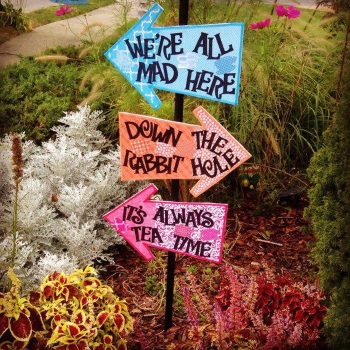 WE'RE ALL
MAD HERE
DOWN THE
RABBIT HOLE
IT'S ALWAYS
TEA TYME